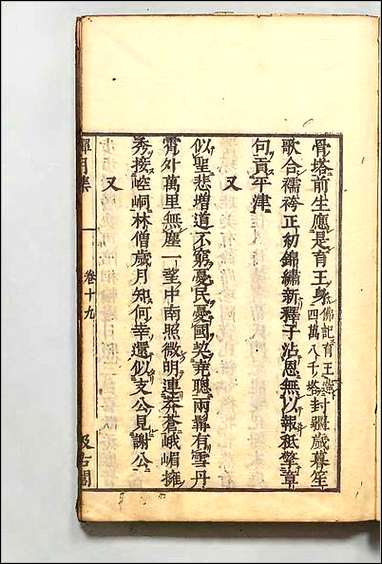 骨塔前生應是育王身
佛記育王
四萬八千塔
封疆歲暮笙
歌合襦袴正初錦繡新釋子沾恩無以報秖擎章
句貢平津
又
似聖悲增道不窮憂民憂國契堯聰兩鬢有雪丹
霄外萬里無塵一望中南照微明連莽蒼峨嵋擁
秀接崆峒林僧歲月知何幸還似支公見謝公
又
禪月集
卷十九
汲古閣